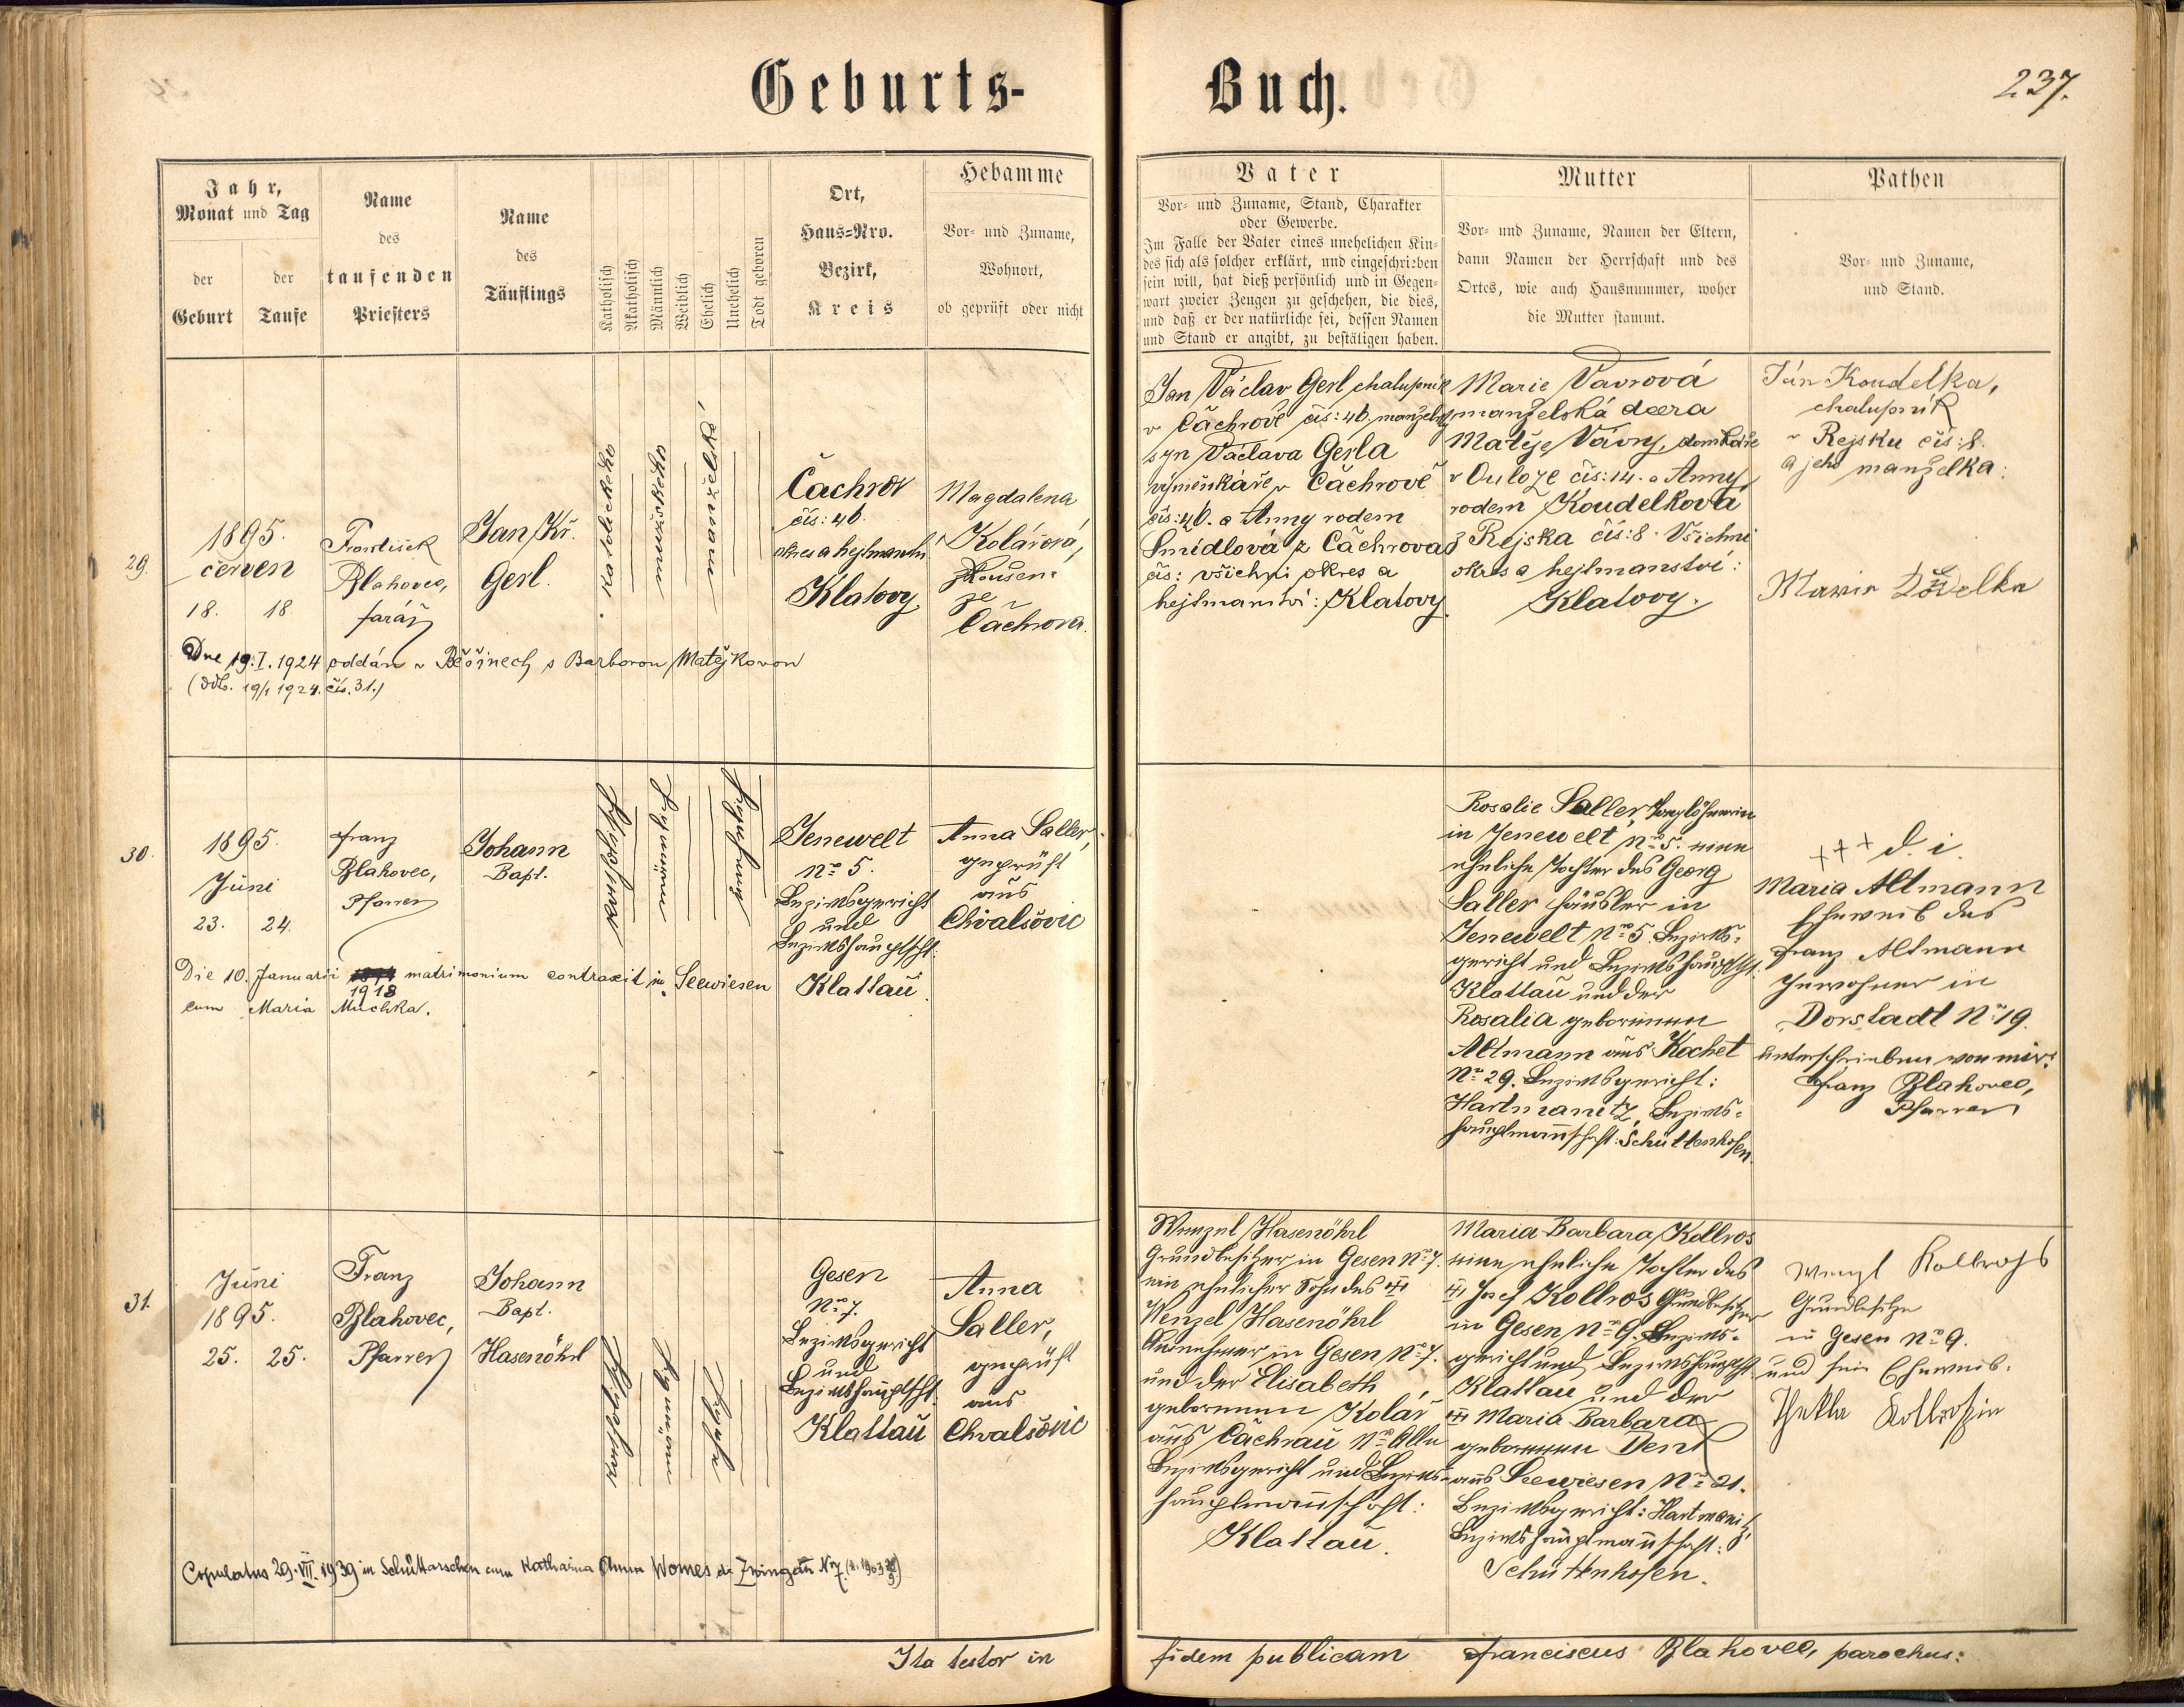 Geburts-
Buch.
237.
Jahr,
Monat und Tag
der
Geburt
der
Taufe
Name
des
taufenden
Priesters
Name
des
Täuflings
Katholisch
Akatholisch
Männlich
Weiblich
Ehelich
Unehelich
Todt geboren
Ort,
Haus=Nro.
Bezirk,
Kreis
Hebamme
Vor- und Zuname,
Wohnort,
ob geprüft oder nicht
Vater
Vor- und Zuname, Stand, Charakter
oder Gewerbe.
Im Falle der Vater eines unehelichen Kin=
des sich als solcher erklärt, und eingeschrieben
sein will, hat dieß persönlich und in Gegen=
wart zweier Zeugen zu geschehen, die dies,
und daß er der natürliche sei, dessen Namen
und Stand er angibt, zu bestätigen haben.
Mutter
Vor- und Zuname, Namen der Eltern,
dann Namen der Herrschaft und des
Ortes, wie auch Hausnummer, woher
die Mutter stammt.
Pathen
Vor- und Zuname,
und Stand.
29.
1895.
červen
18. 18.
František
Blahovec,
farář
Jan Kř.
Gerl.
katolického
mužského
manželské
Čachrov
čís: 46.
okres a hejtmanství
Klatovy
Magdalena
Kolářová,
zkoušená
ze
Čachrova.
Jan Václav Gerl chalupník
v Čáchrově čís: 46. manželský
syn Václava Gerla
výměnkáře v Čáchrově
čís: 46. a Anny rodem
Šmídlová z Čáchrova
čís: všichni okres a
hejtmanství: Klatovy.
Marie Vavrová
manželská dcera
Matěje Vávry, domkáře
v Ouloze čís: 14. a Anny
rodem Koudelková
z Rejska čís: 8. Všichni
okres a hejtmanství:
Klatovy.
Ján Koudelka,
chalupník
v Rejsku čís: 8.
a jeho manželka:
Marie
Dne 19. I. 1924 oddán v Běšinech s Barborou Matějkovou
(odd. 19/I 1924. čís. 31.)
30.
1895.
Juni
23. 24.
Franz
Blahovec,
Pfarrer
Johann
Bapt.
katholisch
Jenewelt
No 5.
Bezirksgericht
und
Bezirkshauptscht.
Klattau.
Anna Saller,
geprüft
aus
Chvalšovic
Rosalie Saller Taglöhnerin
in Jenewelt No 5. eine
eheliche Tochter des Georg
Saller Häusler in
Jenewelt No 5. Bezirks=
gericht und Bezirkshauptscht.
Klattau und der
Rosalia geborenen
Altmann aus Kochet
No 29. Bezirksgericht:
Hartmanitz, Bezirks=
hauptmannschaft: Schüttenhofen.
+++ d. i.
Maria Altmann
Eheweib des
Franz Altmann
Inwohner in
Dorstadt No 19.
unterschrieben von mir:
Franz Blahovec,
Pfarrer
Die 10. Januarii 1918 matrimonium contraxit in Seewiesen
cum Maria Muchka.
31.
Juni
1895.
25. 25.
Franz
Blahovec,
Pfarrer
Johann
Bapt.
Hasenöhrl
katholisch
Gesen
No 7.
Bezirksgericht
und
Bezirkshauptscht.
Klattau
Anna
Saller,
geprüft
aus
Chvalšovic
Wenzel Hasenöhrl
Grundbesitzer in Gesen No 7.
ein ehelicher Sohn des
Wenzel Hasenöhrl
Ausnehmer in Gesen No 7.
und der Elisabeth
geborenen Kolář
aus Čachrau No Alle
Bezirksgericht und Bezirks=
hauptmannschaft:
Klattau.
Maria Barbara Kollros
eine eheliche Tochter des
Josef Kollros Grundbesitzer
in Gesen No 9. Bezirks=
gericht und Bezirkshauptscht.
Klattau und der
Maria Barbara
geborenen Denk
aus Seewiesen No 21.
Bezirksgericht: Hartmanitz
Bezirkshauptmannschaft:
Schüttenhofen.
Wenzl Kollross
Grundbesitzer
in Gesen No 9.
und sein Eheweib.
Thekla Kollrossin
Copulatus 29. VII. 1939 in Schüttarschen cum Katharina Anna Womes de Zwingau Nr 7.
Ita testor in
fidem publicam Franciscus Blahovec, parochus: